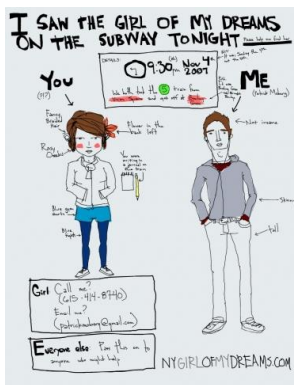 I SAW THE GIRL OF MY DREAMS
ON THE SUBWAY TONIGHT
Please help me find her
DETAILS:
9:30 pm Nov 4th
2007
We both took the 5 train from
YOU
ME
(Patrick Moberg)
Flower in the
back left
Rosy
Cheeks
You were
writing in
a journal
Not insane
Blue gym
shorts
Blue
tights
tall
Girl Call me?
(615-414-8740)
Email me?
Everyone else Pass this on to
anyone who might help
NYGIRLOFMYDREAMS.COM